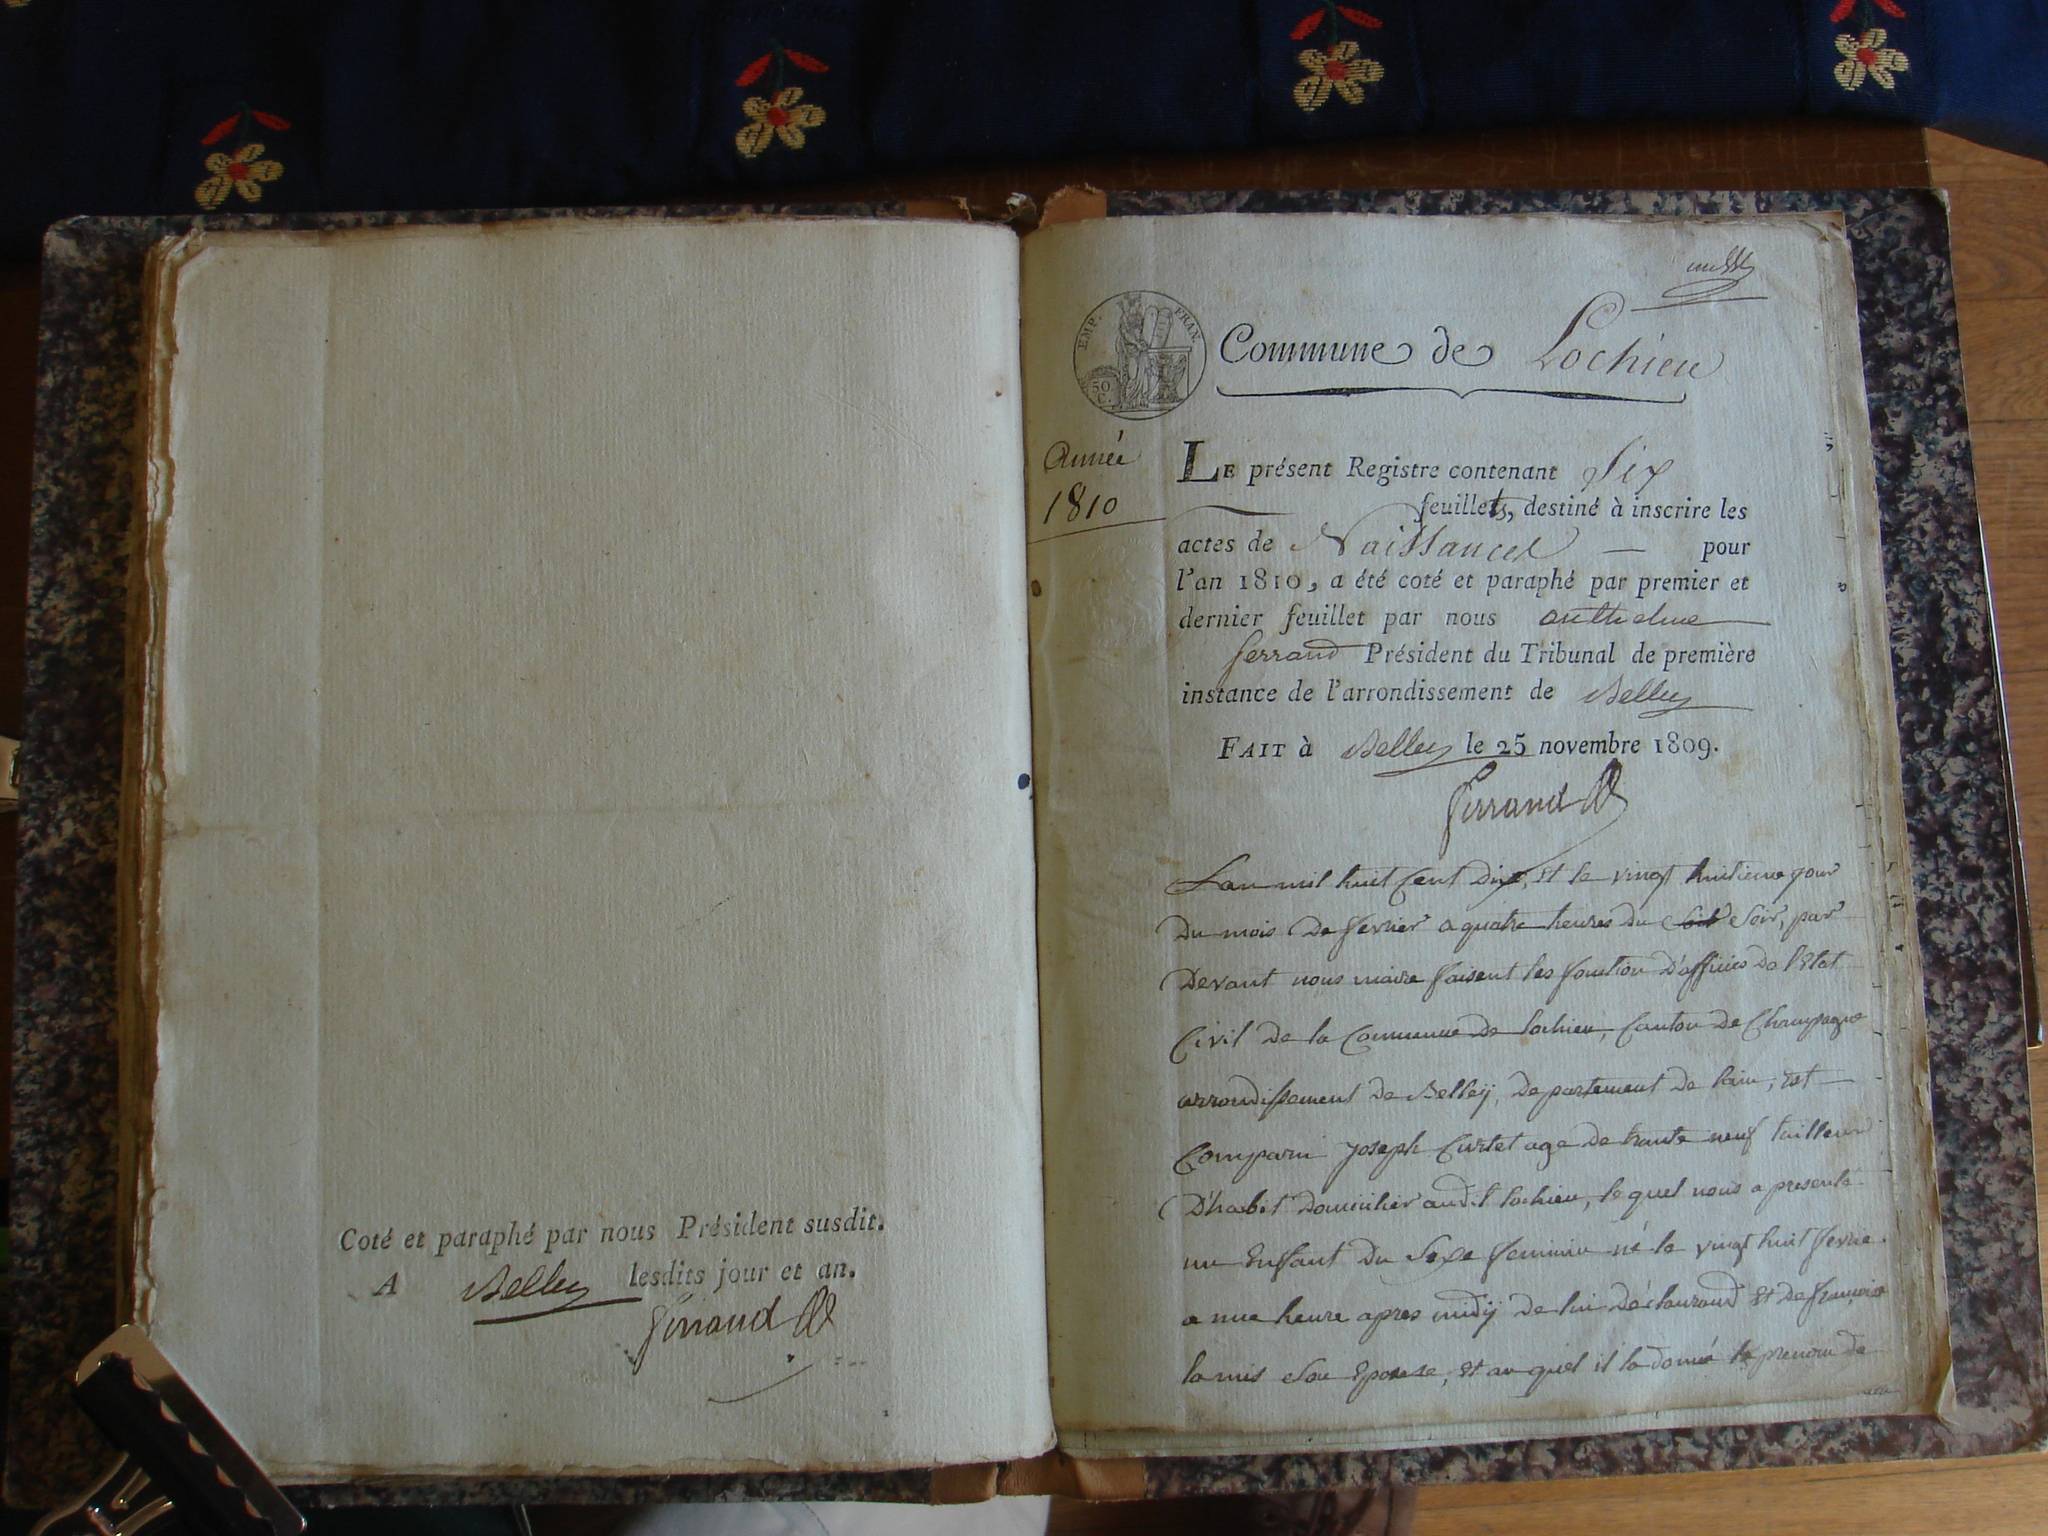 Coté et paraphé par nous Président susdit.
A Belley lesdits jour et an.
ferrand
EMP. FRAN.
50
C.
Commune de Lochieu
Année
1810
LE présent Registre contenant Six
feuillets, destiné à inscrire les
actes de Naissances — pour
l'an 1810, a été coté et paraphé par premier et
dernier feuillet par nous anthelme
ferrand Président du Tribunal de première
instance de l'arrondissement de Belley
FAIT à Belley le 25 novembre 1809.
ferrand
Lan mil huit Cent dix, et le vingt huitieme jour
Du mois De fevrier a quatre heures du Soir, par
Devant nous maire faisent les fonction D'officier de l'Etat
Civil De la Commune de lochieu, Canton de Champagne
arrondissement de Belleÿ, Departement de lain, est
Comparu joseph Curtet age de trante neuf tailleur
D'habit Domicilier audit lochieu, le quel nous a presenté
un Enfant Du Sexe feminin né le vingt huit fevrie
a une heure apres midÿ de lui Déclaurand et De françoise
lamis Son Epouse, et au quel il la donné le prenom de